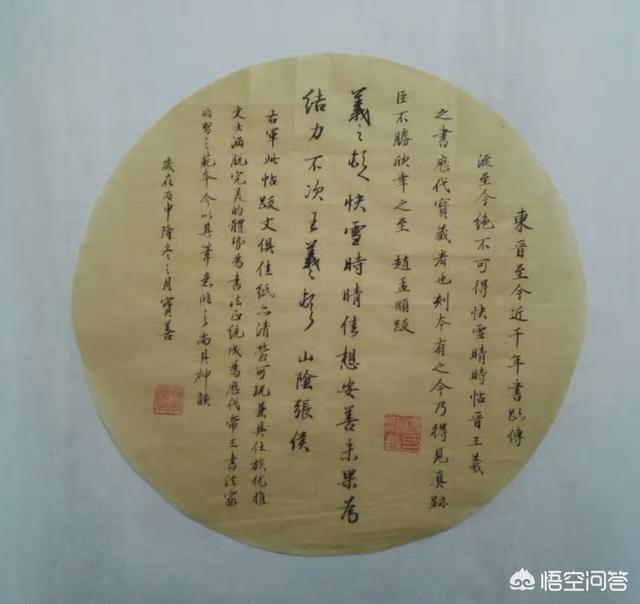 東晋至今近千年書跡傳
流至今絕不可得快雪晴時帖晋王羲
之書歷代寶藏者也刻本有之今乃得見真跡
臣不勝欣幸之至 趙孟頫跋
羲之頓首快雪時晴佳想安善未果為
結力不次王羲之頓首 山陰張侯
右軍此帖跋文俱佳紙亦清瑩可玩兼具仕族优雅
文士洒脱完美的體勢為書法正統成為歷代帝王書法家
临習之範本今以其筆意临之尚具神韻
歲在丙申隆冬之月寶善
悟空问答